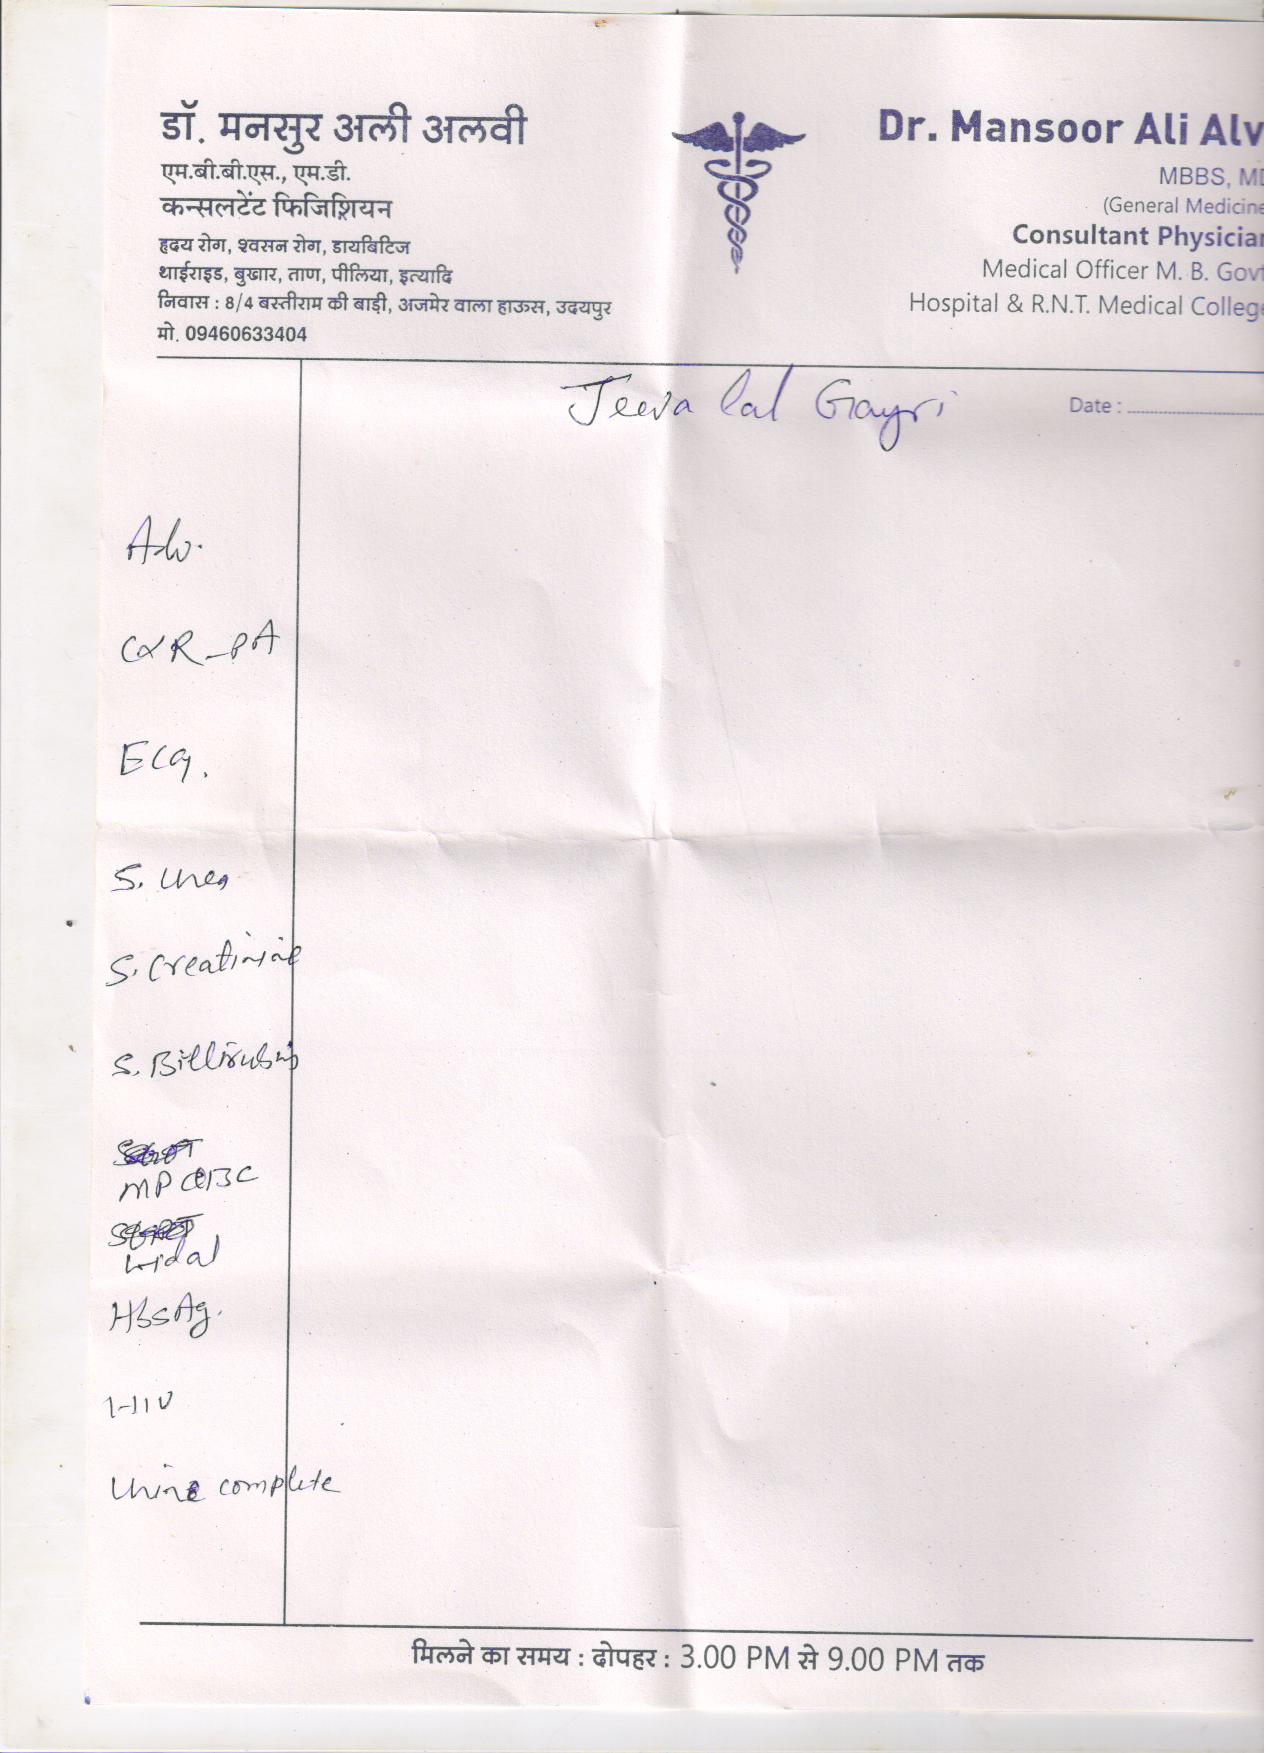 डॉ. मनसुर अली अलवी
एम.बी.बी.एस., एम.डी.
कन्सलटेंट फिजिशियन
हृदय रोग, श्वसन रोग, डायबिटिज
थाईराइड, बुखार, ताण, पीलिया, इत्यादि
निवास : 8/4 बस्तीराम की बाड़ी, अजमेर वाला हाऊस, उदयपुर
मो. 09460633404
Dr. Mansoor Ali Alv
MBBS, MD
(General Medicine
Consultant Physician
Medical Officer M. B. Govt
Hospital & R.N.T. Medical College
Jeeva lal Gayri
Date :
Adv.
CXR-PA
ECG.
S. Urea
S. Creatinine
S. Billirubin
MP CBC
Widal
HbsAg.
HIV
Urine complete
मिलने का समय : दोपहर : 3.00 PM से 9.00 PM तक